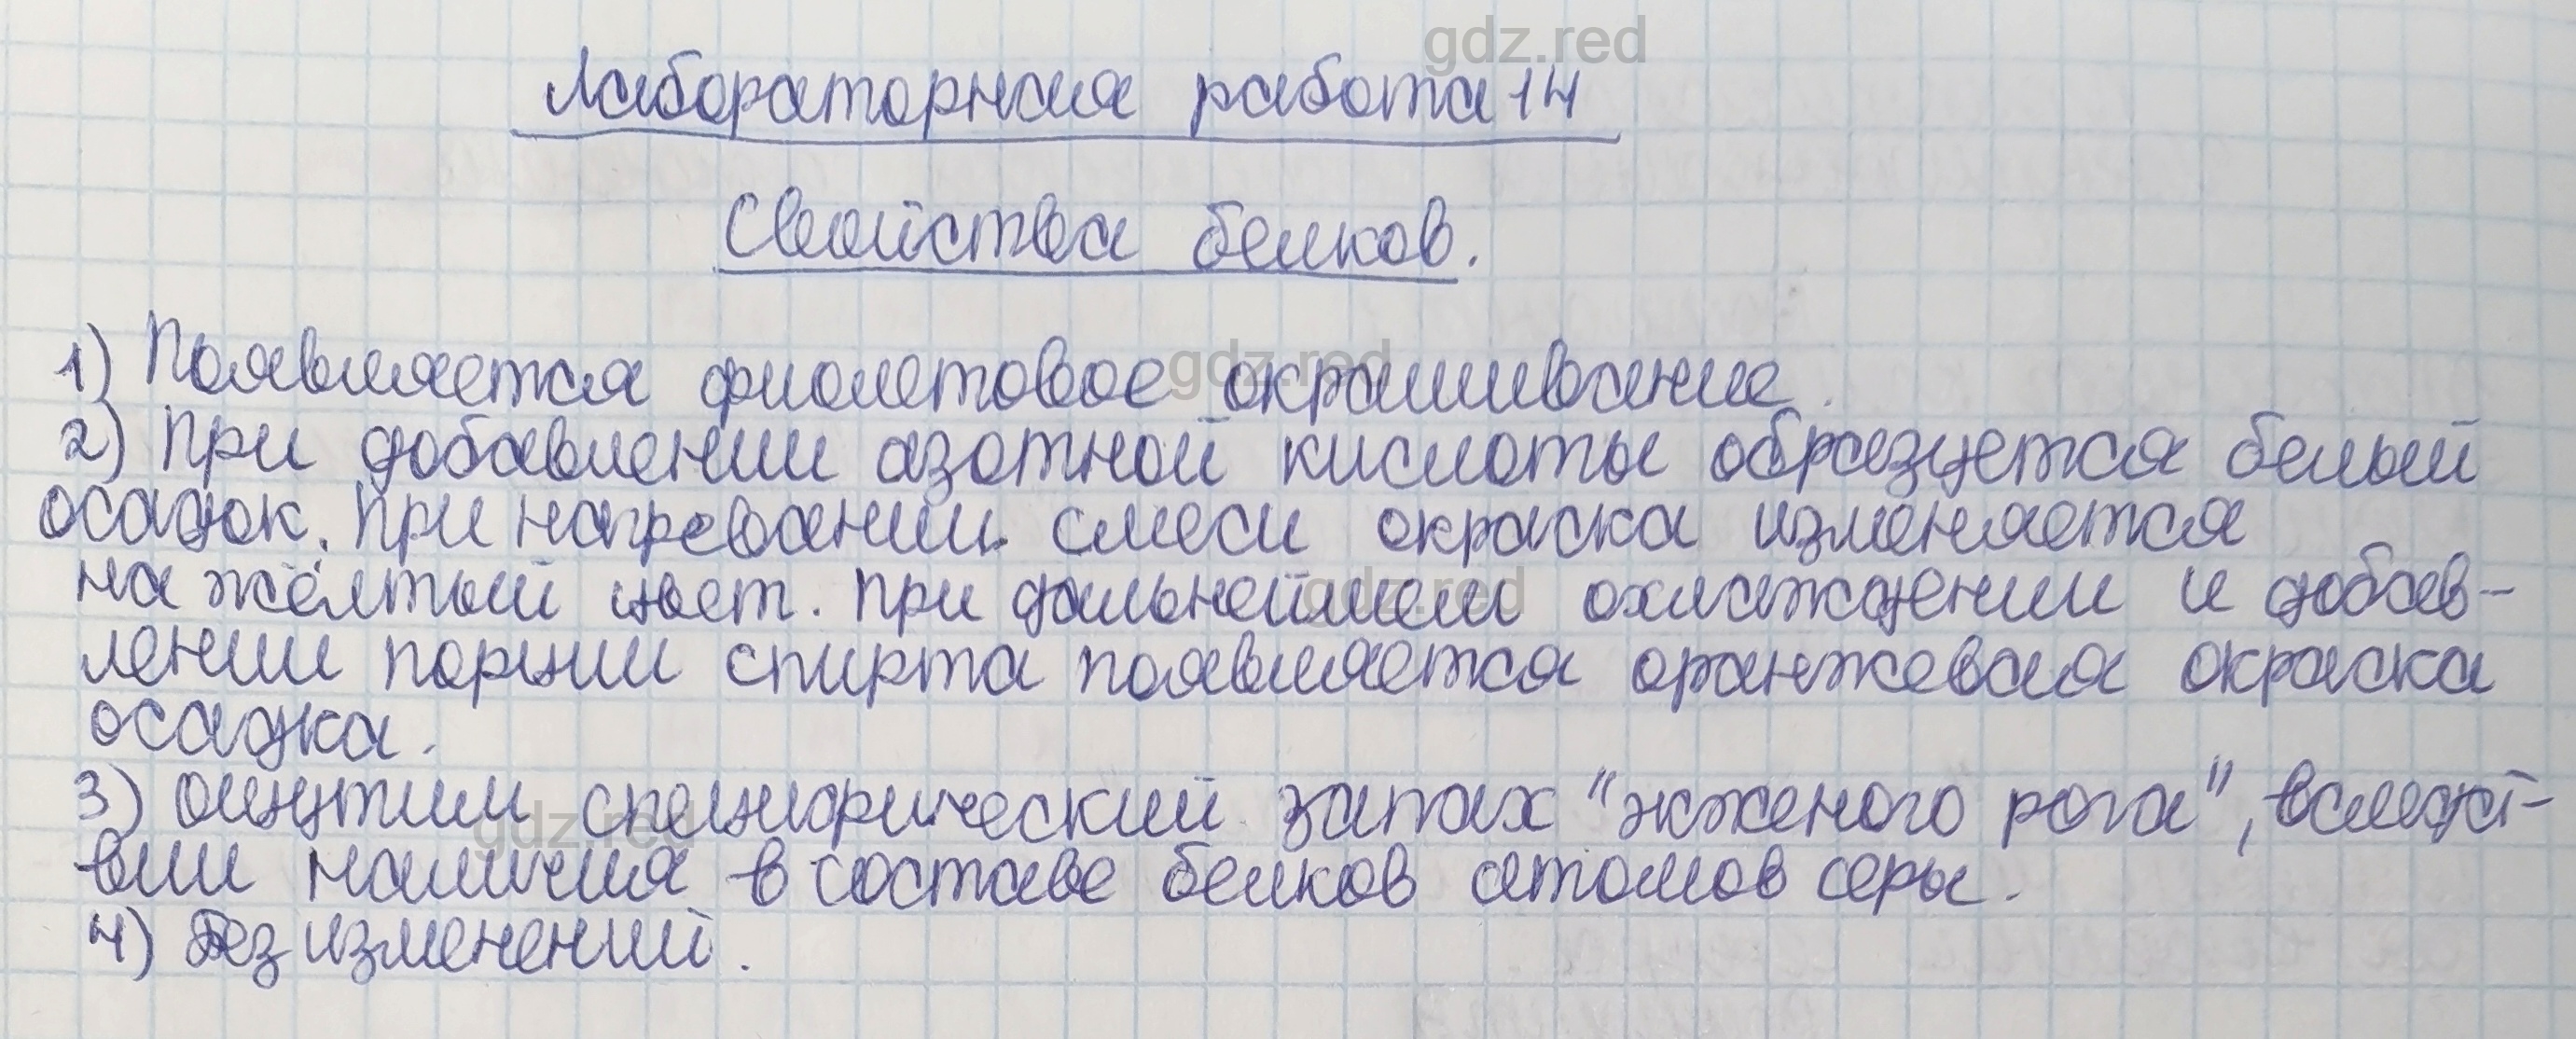 gdz.red
Лабораторная работа 14
Свойства белков.
gdz.red
1) Появляется фиолетовое окрашивание.
2) При добавлении азотной кислоты образуется белый
осадок. При нагревании смеси окраска изменяется
gdz.red
на жёлтый цвет. При дальнейшем охлаждении и добав-
лении порции спирта появляется оранжевая окраска
осадка.
3) Ощутим специфический запах "жженого рога", вследст-
gdz.red
вии наличия в составе белков атомов серы.
4) Без изменений.